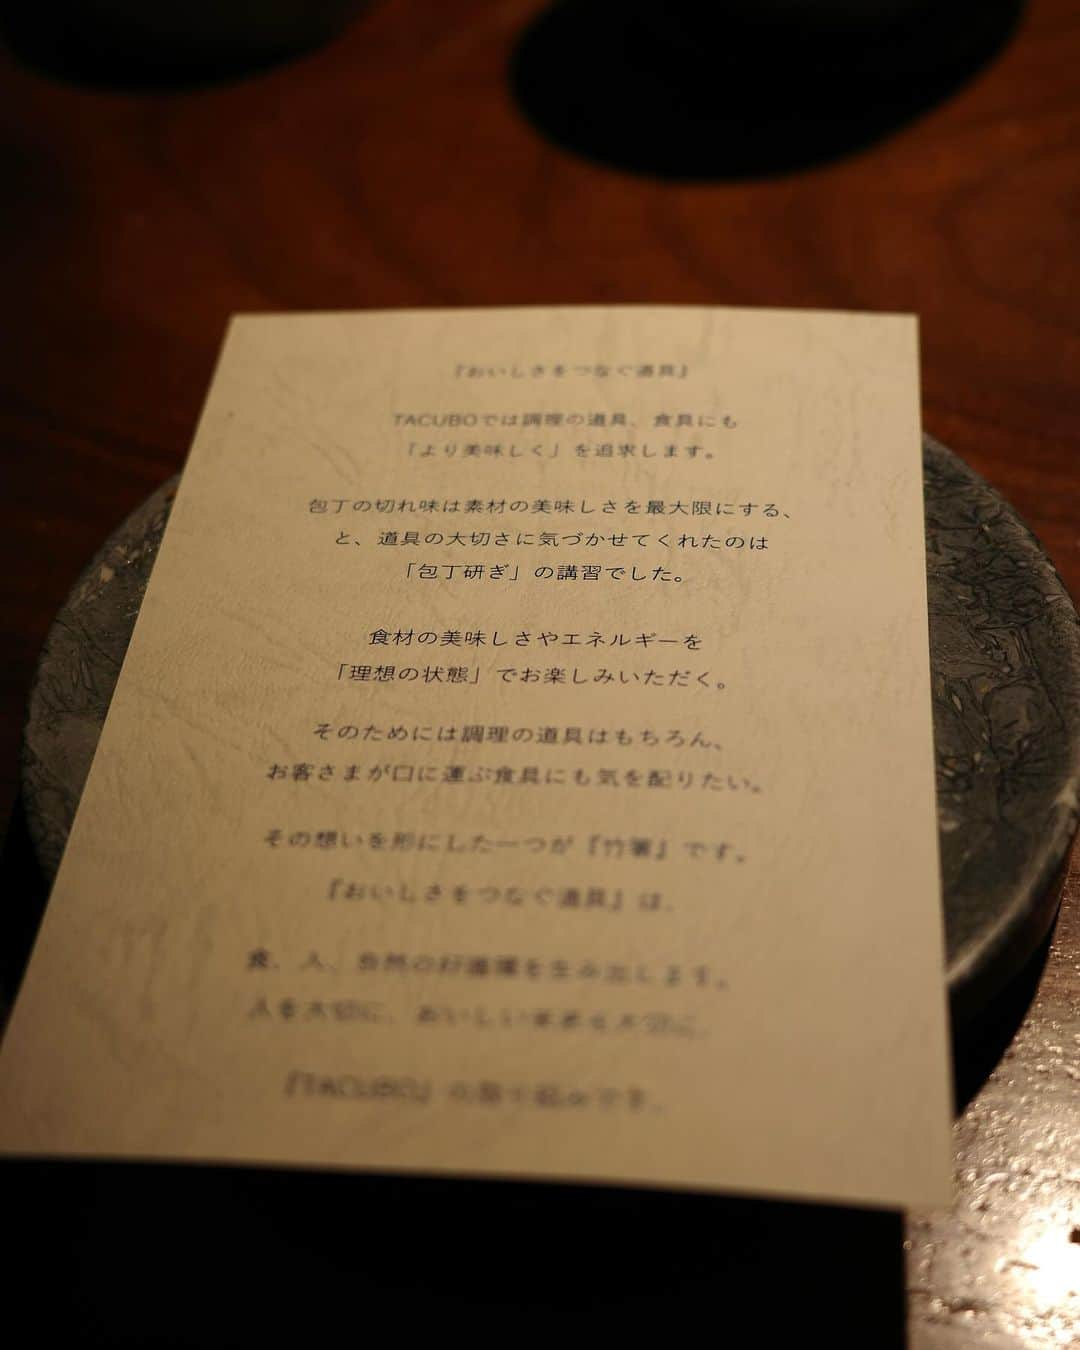 『おいしさをつなぐ道具』
TACUBOでは調理の道具、食具にも
「より美味しく」を追求します。
包丁の切れ味は素材の美味しさを最大限にする、
と、道具の大切さに気づかせてくれたのは
「包丁研ぎ」の講習でした。
食材の美味しさやエネルギーを
「理想の状態」でお楽しみいただく。
そのためには調理の道具はもちろん、
お客さまが口に運ぶ食具にも気を配りたい。
その想いを形にした一つが『竹箸』です。
『おいしさをつなぐ道具』は、
食、人、自然の好循環を生み出します。
人を大切に、おいしい未来を大切に。
『TACUBO』の取り組みです。